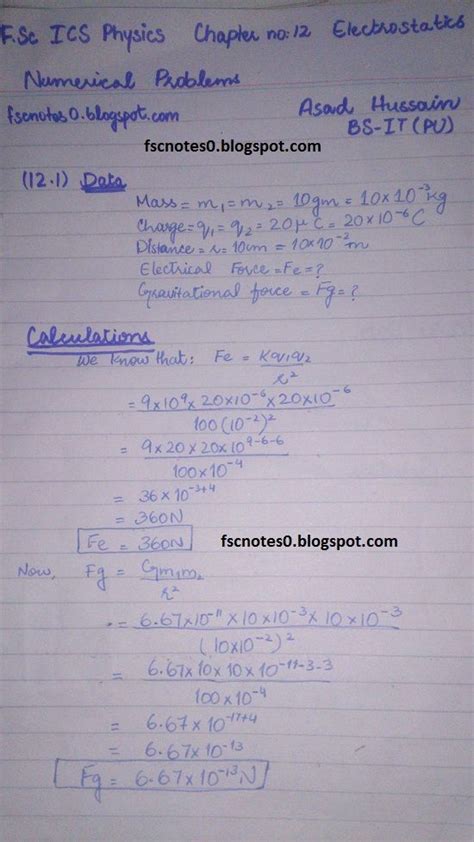 F.Sc ICS Physics Chapter no:12 Electrostatics
Numerical Problems
fscnotes0.blogspot.com Asad Hussain
BS-IT(PU)
fscnotes0.blogspot.com
(12.1) Data
Mass = m₁ = m₂ = 10gm = 10×10⁻³kg
Charge = q₁ = q₂ = 20μC = 20×10⁻⁶C
Distance = r = 10cm = 10×10⁻²m
Electrical Force = Fe = ?
Gravitational force = Fg = ?
Calculations
We know that: Fe = Kq₁q₂
r²
= 9×10⁹×20×10⁻⁶×20×10⁻⁶
100(10⁻²)²
= 9×20×20×10⁹⁻⁶⁻⁶
100×10⁻⁴
= 36×10⁻³⁺⁴
= 360N
Fe = 360N fscnotes0.blogspot.com
Now, Fg = Gm₁m₂
r²
= 6.67×10⁻¹¹×10×10⁻³×10×10⁻³
(10×10⁻²)²
= 6.67×10×10×10⁻¹¹⁻³⁻³
100×10⁻⁴
= 6.67×10⁻¹⁷⁺⁴
= 6.67×10⁻¹³
Fg = 6.67×10⁻¹³N